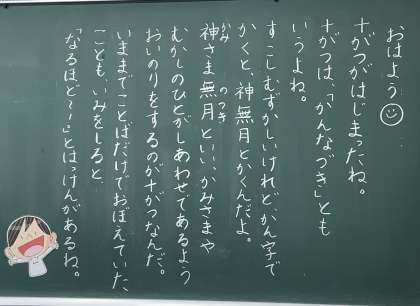 おはよう
十がつがはじまったね。
十がつは、「かんなづき」とも
いうよね。
すこしむずかしいけれどかん字で
かくと、神無月とかくんだよ。
神さま無月といい、かみさまや
むかしのひとがしあわせであるよう
おいのりをするのが十がつなんだ。
いままでことばだけでおぼえていた
ことも、いみをしると、
「なるほど〜!」とはっけんがあるね。